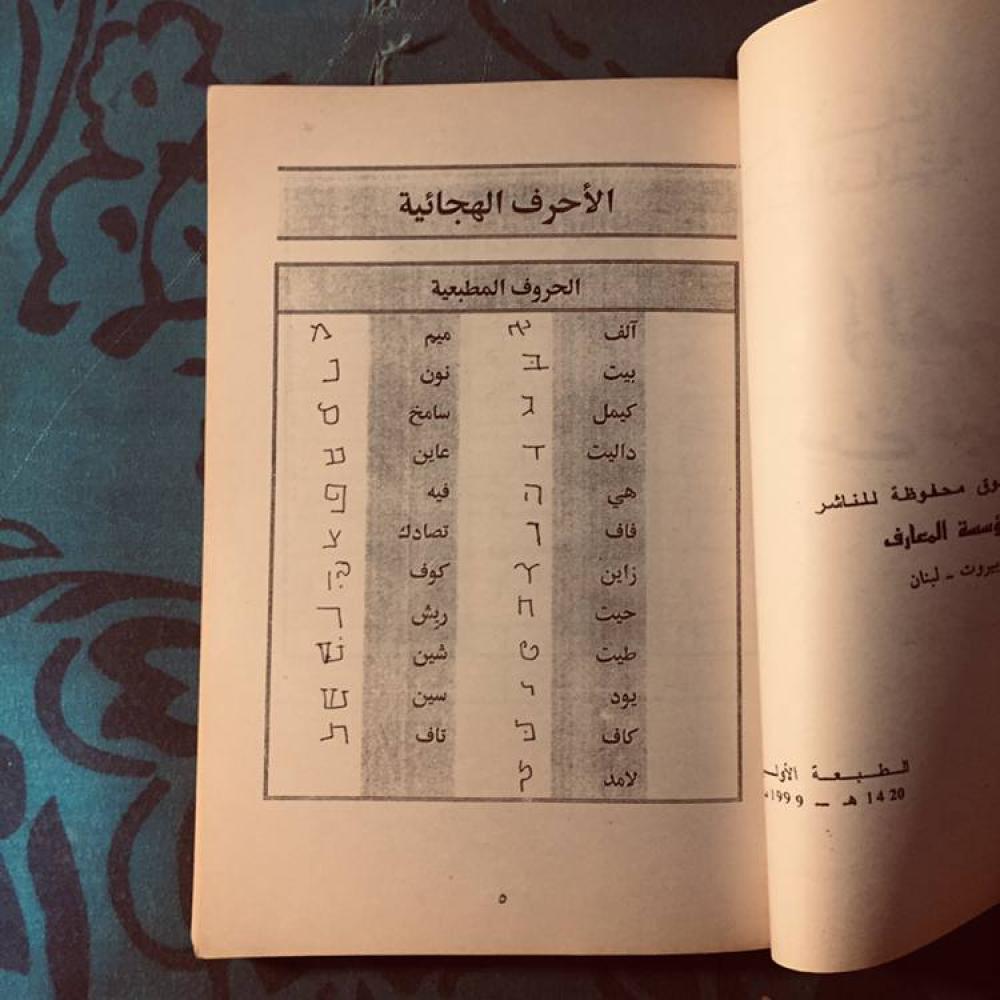 الأحرف الهجائية
الحروف المطبعية
آلف א ميم מ
بيت בּ نون נ
كيمل ג سامخ ס
داليت ד عاين ע
هي ה فيه פ
فاف ו تصادك צ
زاين ז كوف ק
حيت ח ريش ר
طيت ט شين שׁ
يود י سين שׂ
كاف כּ تاف ת
لامد ל
٥
محفوظة للناشر
المعارف
بيروت - لبنان
الطبعة الأولـ
1420 هـ – 1999